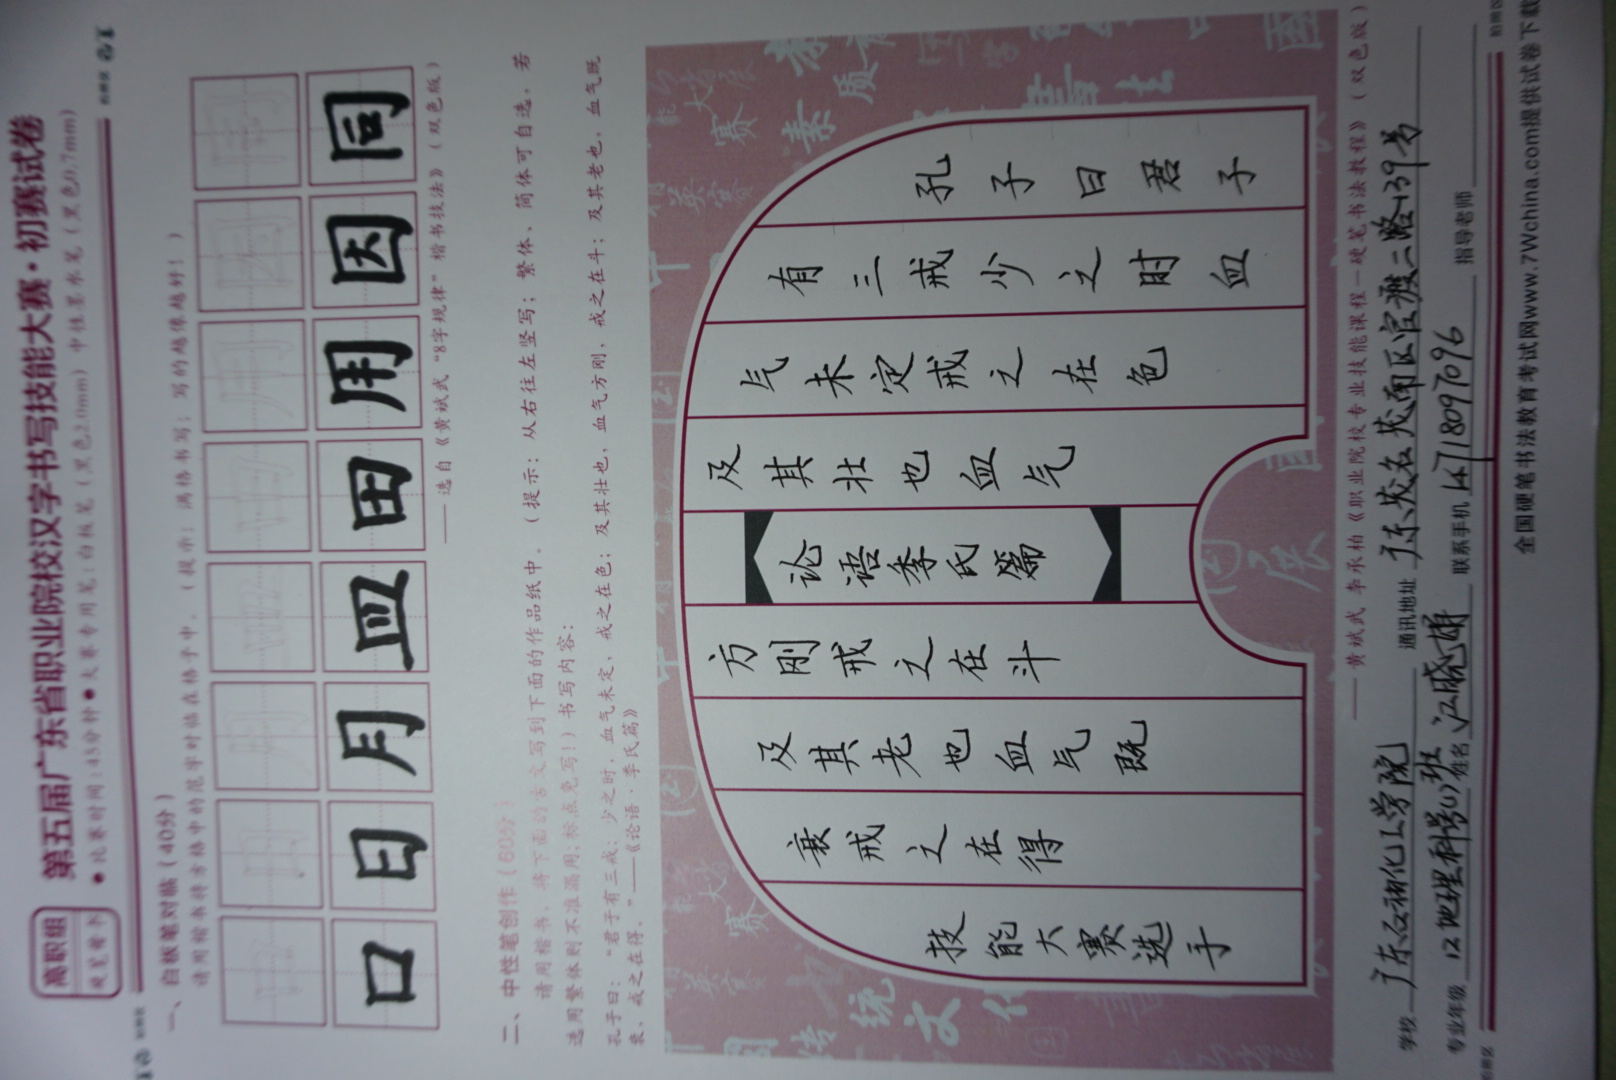 第五届广东省职业院校汉字书写技能大赛·初赛试卷
高职组
硬笔楷书
●比赛时间:45分钟●大赛专用笔:白板笔(黑色2.0mm) 中性墨水笔(黑色0.7mm)
一、白板笔对临(40分)
请用楷书将方格中的范字对临在格子中。(提示:满格书写;写的越像越好!)
口日月皿田用因同
——选自《黄斌武“8字规律”楷书技法》(双色版)
二、中性笔创作(60分)
请用楷书,将下面的古文写到下面的作品纸中。(提示:从右往左竖写;繁体、简体可自选,若
选用繁体则不准混用;标点免写!)书写内容:
孔子曰:“君子有三戒:少之时,血气未定,戒之在色;及其壮也,血气方刚,戒之在斗;及其老也,血气既
衰,戒之在得。”——《论语·季氏篇》
孔子曰君子
有三戒少之时血
气未定戒之在色
及其壮也血气
论语季氏篇
方刚戒之在斗
及其老也血气既
衰戒之在得
技能大赛选手
——黄斌武 李承柏《职业院校专业技能课程—硬笔书法教程》(双色版)
学校 广东石油化工学院 通讯地址 广东茂名茂南区官渡二路139号
专业年级 12地理科学(1)班 姓名 江晓妍 联系手机 14718097096 指导老师
全国硬笔书法教育考试网www.7Wchina.com提供试卷下载